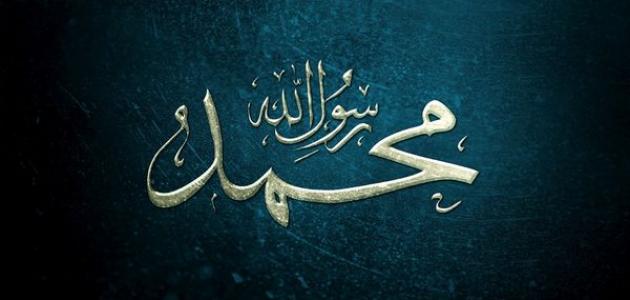 محمد
رسول الله